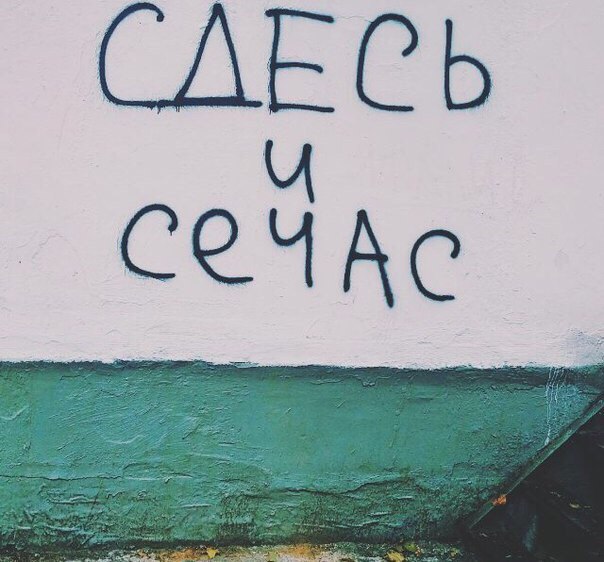 СДЕСЬ
и
сеЧАС